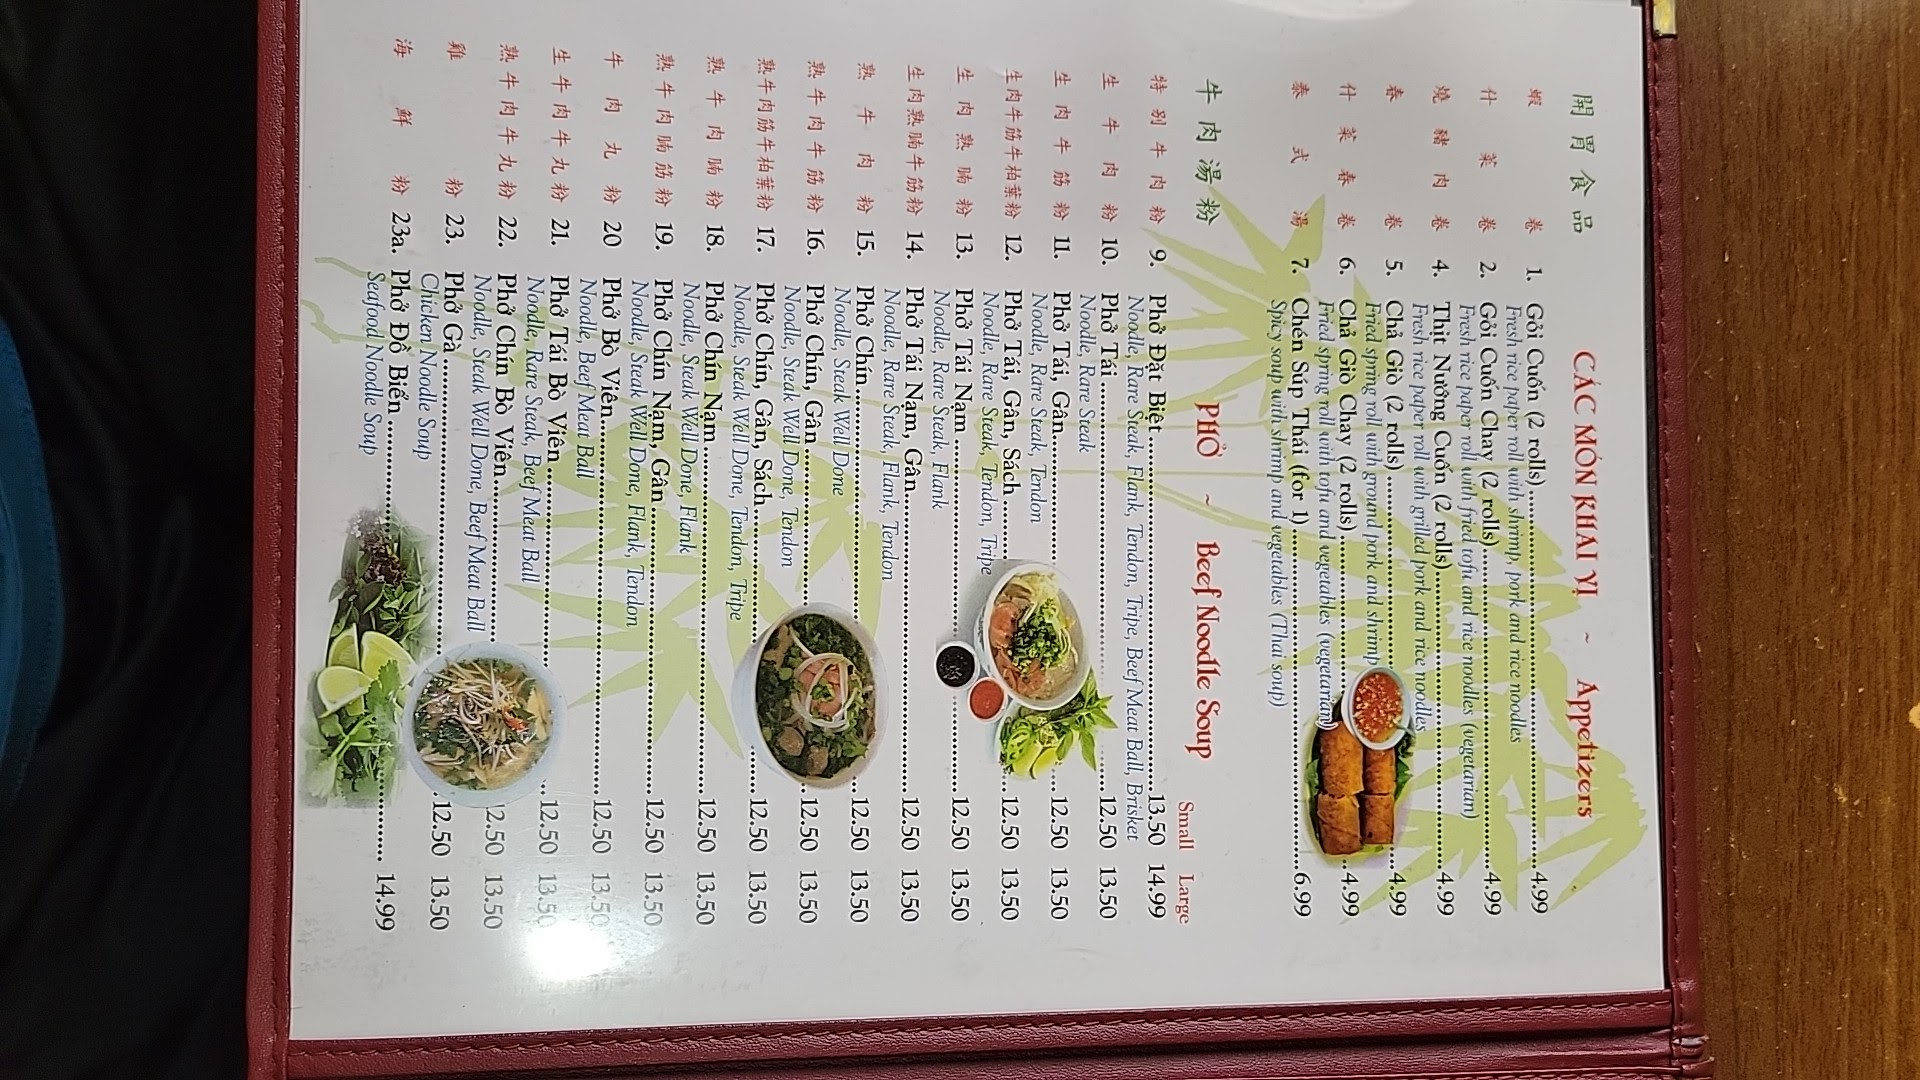 開胃食品 CÁC MÓN KHAI VỊ ~ Appetizers
蝦卷 1. Gỏi Cuốn (2 rolls) 4.99
Fresh rice paper roll with shrimp, pork and rice noodles
什菜卷 2. Gỏi Cuốn Chay (2 rolls) 4.99
Fresh rice paper roll with fried tofu and rice noodles (vegetarian)
燒豬肉卷 4. Thịt Nướng Cuốn (2 rolls) 4.99
Fresh rice paper roll with grilled pork and rice noodles
春卷 5. Chả Giò (2 rolls) 4.99
Fried spring roll with ground pork and shrimp
什菜春卷 6. Chả Giò Chay (2 rolls) 4.99
Fried spring roll with tofu and vegetables (vegetarian)
泰式湯 7. Chén Súp Thái (for 1) 6.99
Spicy soup with shrimp and vegetables (Thai soup)
牛肉湯粉 PHỞ ~ Beef Noodle Soup
Small Large
特别牛肉粉 9. Phở Đặt Biệt 13.50 14.99
Noodle, Rare Steak, Flank, Tendon, Tripe, Beef Meat Ball, Brisket
生牛肉粉 10. Phở Tái 12.50 13.50
Noodle, Rare Steak
生肉牛筋粉 11. Phở Tái, Gân 12.50 13.50
Noodle, Rare Steak, Tendon
生肉牛筋牛柏葉粉 12. Phở Tái, Gân, Sách 12.50 13.50
Noodle, Rare Steak, Tendon, Tripe
生肉熟腩粉 13. Phở Tái Nạm 12.50 13.50
Noodle, Rare Steak, Flank
生肉熟腩牛筋粉 14. Phở Tái Nạm, Gân 12.50 13.50
Noodle, Rare Steak, Flank, Tendon
熟牛肉粉 15. Phở Chín 12.50 13.50
Noodle, Steak Well Done
熟牛肉牛筋粉 16. Phở Chín, Gân 12.50 13.50
Noodle, Steak Well Done, Tendon
熟牛肉筋牛柏葉粉 17. Phở Chín, Gân, Sách 12.50 13.50
Noodle, Steak Well Done, Tendon, Tripe
熟牛肉腩粉 18. Phở Chín Nạm 12.50 13.50
Noodle, Steak Well Done, Flank
熟牛肉腩筋粉 19. Phở Chín Nạm, Gân 12.50 13.50
Noodle, Steak Well Done, Flank, Tendon
牛肉丸粉 20 Phở Bò Viên 12.50 13.50
Noodle, Beef Meat Ball
生牛肉牛丸粉 21. Phở Tái Bò Viên 12.50 13.50
Noodle, Rare Steak, Beef Meat Ball
熟牛肉牛丸粉 22. Phở Chín Bò Viên 12.50 13.50
Noodle, Steak Well Done, Beef Meat Ball
雞粉 23. Phở Gà 12.50 13.50
Chicken Noodle Soup
海鮮粉 23a. Phở Đồ Biển 14.99
Seafood Noodle Soup